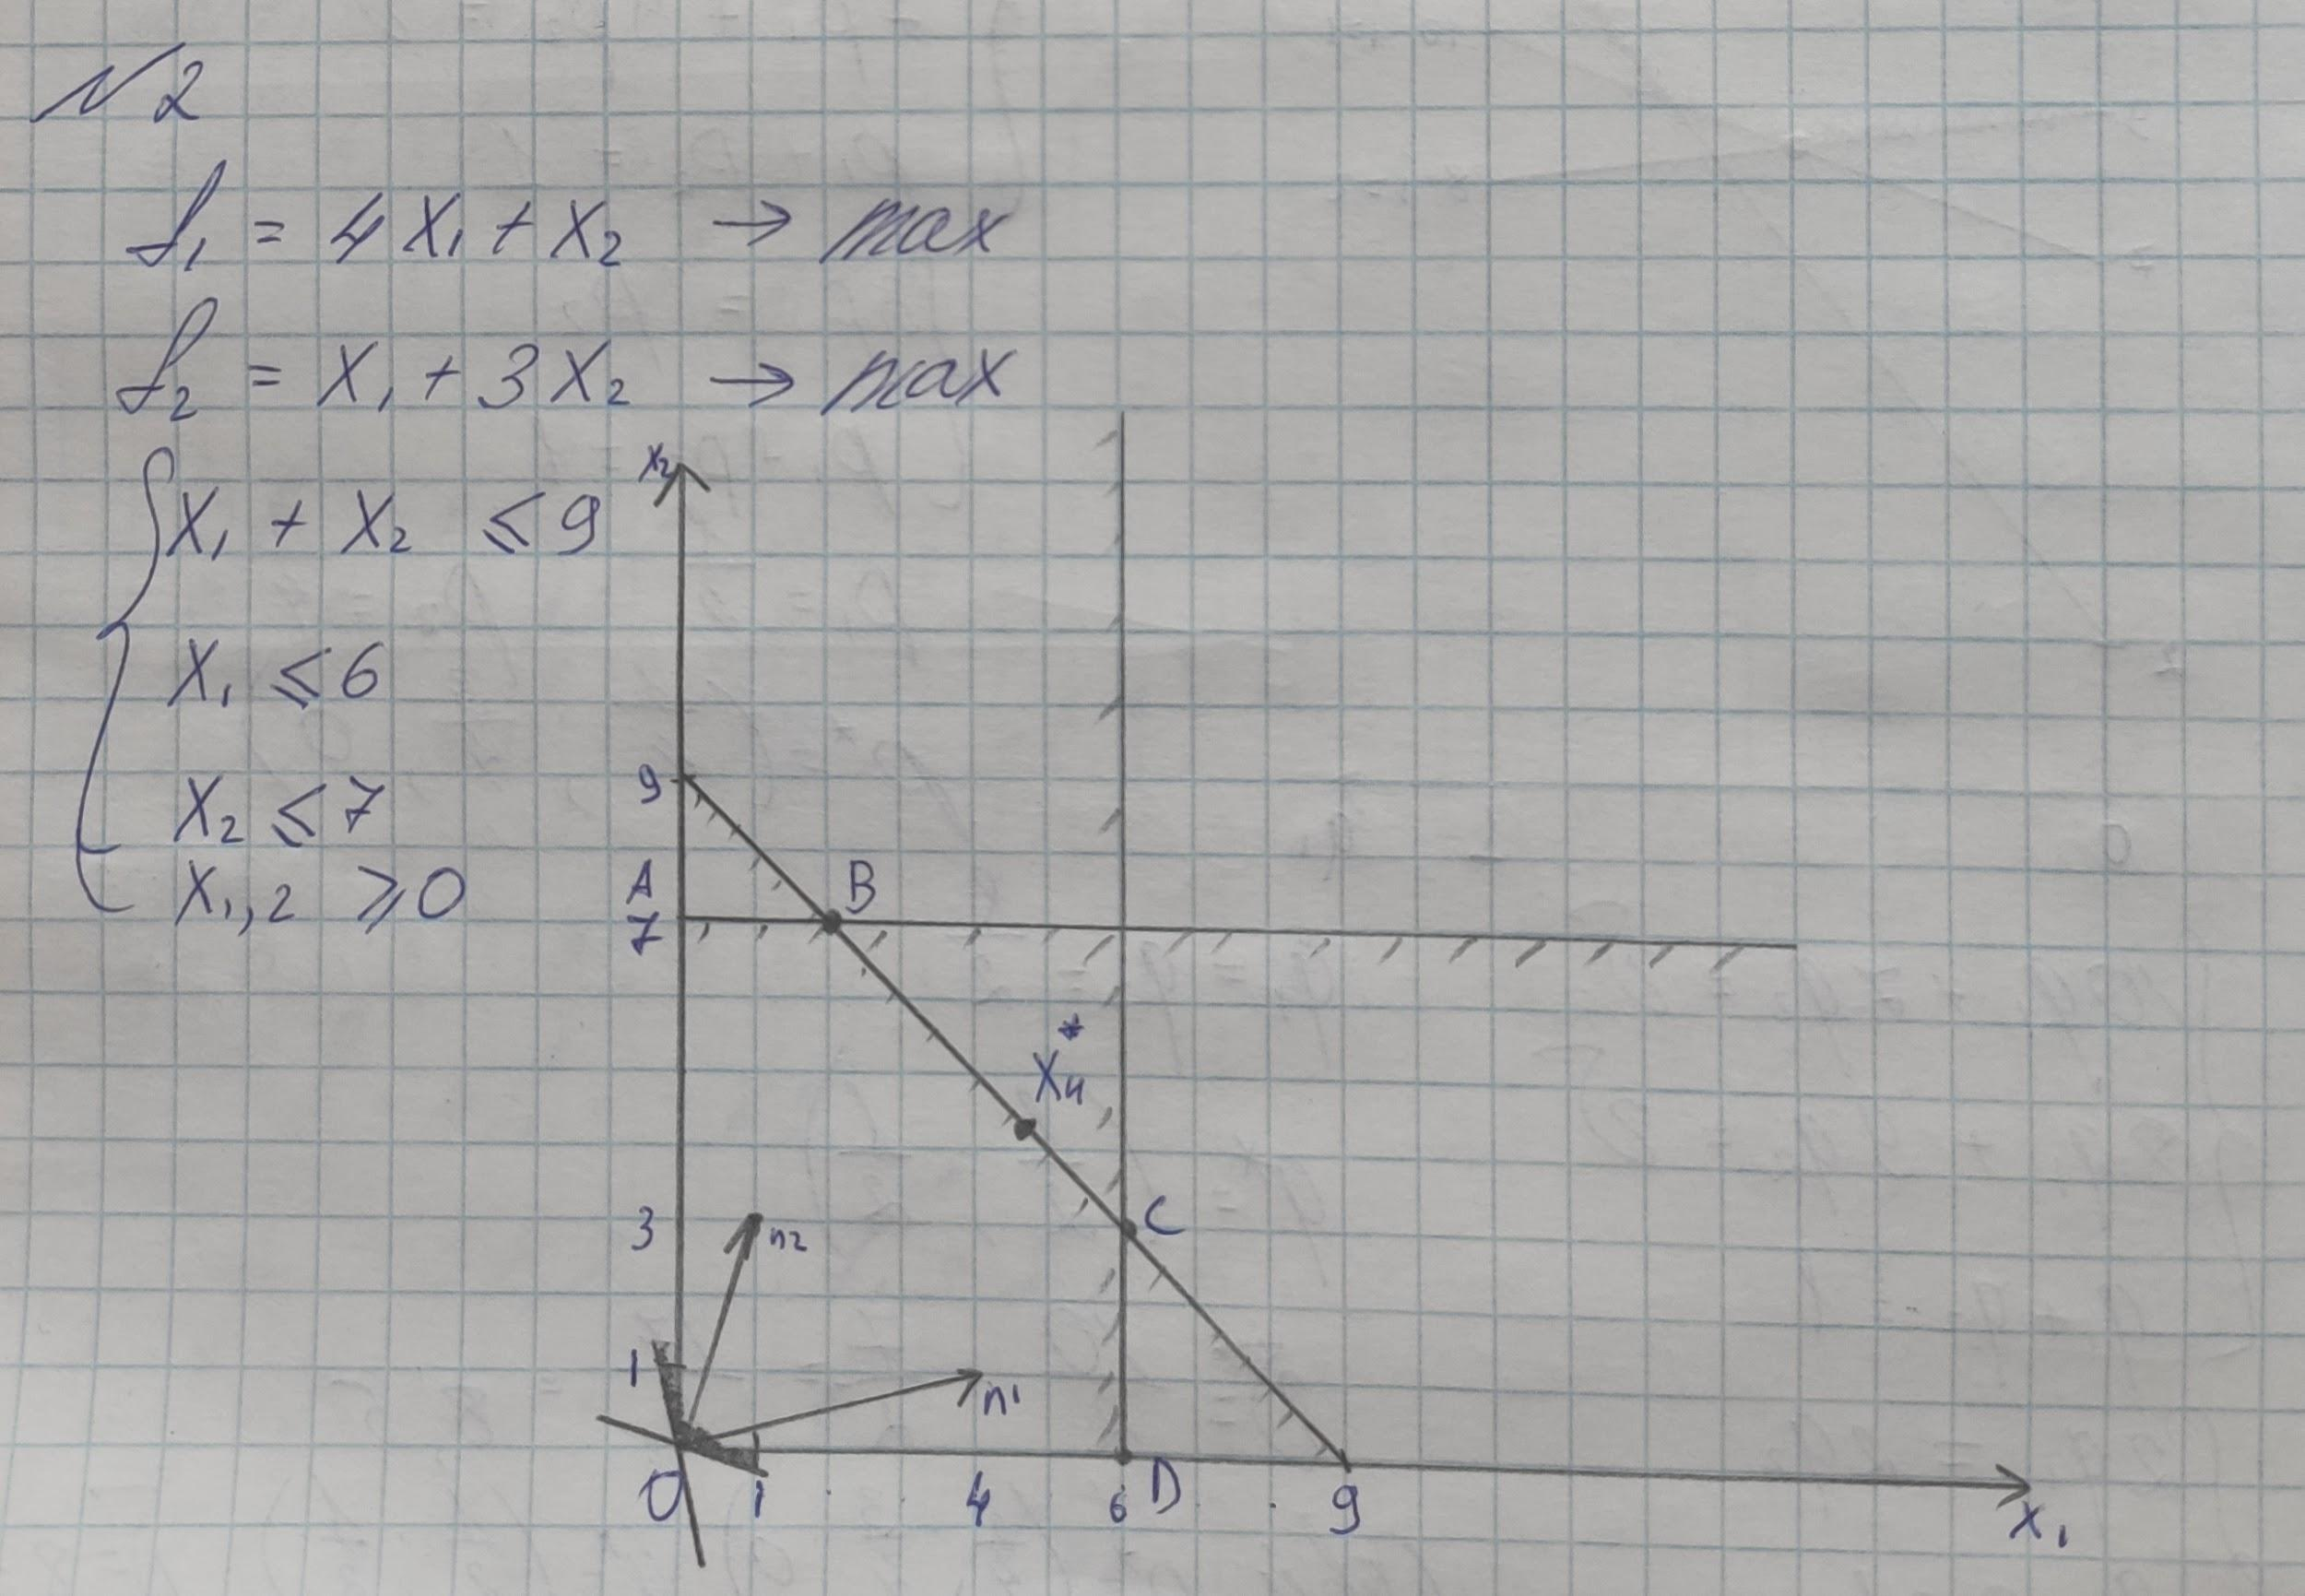 N2
f₁ = 4X₁ + X₂ → max
f₂ = X₁ + 3X₂ → max
X₁ + X₂ ≤ 9
X₁ ≤ 6
X₂ ≤ 7
X₁,₂ ≥ 0
x₂
9
A B
7
X₄*
3 n₂ C
1 n¹
0 1 4 6 D 9 x₁